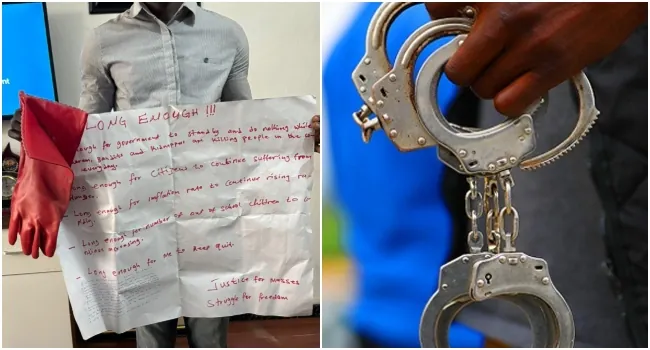 nt
LONG ENOUGH !!!
ough for government to standby and do nothing while
haram, bandits and kidnapper are killing people in the
everyday.
ong enough for Citizens to continue suffering from
hunger.
- Long enough for inflation rate to continue rising
- Long enough for number of out of school children to
- Long enough for me to keep quit.
Justice for masses
Struggle for freedom